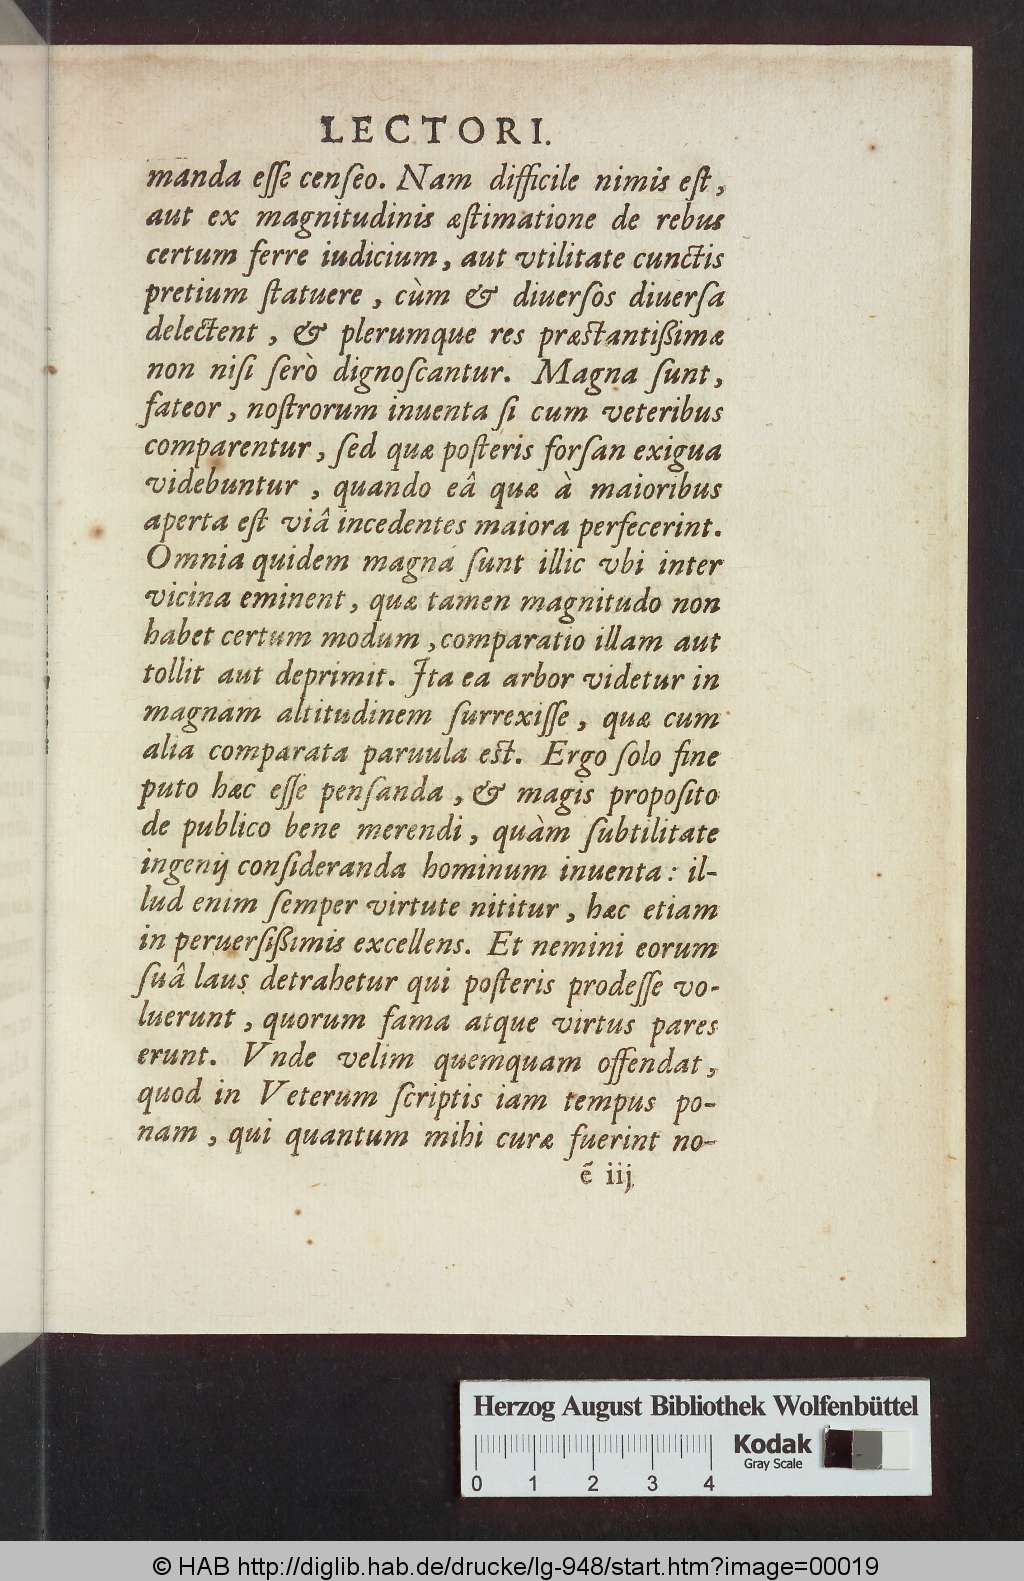 LECTORI.
manda eſſe cenſeo. Nam difficile nimis eſt,
aut ex magnitudinis æſtimatione de rebus
certum ferre iudicium, aut vtilitate cunctis
pretium ſtatuere, cùm & diuerſos diuerſa
delectent, & plerumque res præstantißimæ
non niſi ſerò dignoſcantur. Magna ſunt,
fateor, noſtrorum inuenta ſi cum veteribus
comparentur, ſed quæ poſteris forſan exigua
videbuntur, quando eâ quæ à maioribus
aperta eſt viâ incedentes maiora perfecerint.
Omnia quidem magna ſunt illic vbi inter
vicina eminent, quæ tamen magnitudo non
habet certum modum, comparatio illam aut
tollit aut deprimit. Ita ea arbor videtur in
magnam altitudinem ſurrexiſſe, quæ cum
alia comparata paruula est. Ergo ſolo fine
puto hæc eſſe penſanda, & magis propoſito
de publico bene merendi, quàm ſubtilitate
ingenij conſideranda hominum inuenta: il-
lud enim ſemper virtute nititur, hæc etiam
in peruerſißimis excellens. Et nemini eorum
ſuâ laus detrahetur qui poſteris prodeſſe vo-
luerunt, quorum fama atque virtus pares
erunt. Vnde velim quemquam offendat,
quod in Veterum ſcriptis iam tempus po-
nam, qui quantum mihi curæ fuerint no-
ẽ iij
Herzog August Bibliothek Wolfenbüttel
Kodak
Gray Scale
0 1 2 3 4
© HAB http://diglib.hab.de/drucke/lg-948/start.htm?image=00019